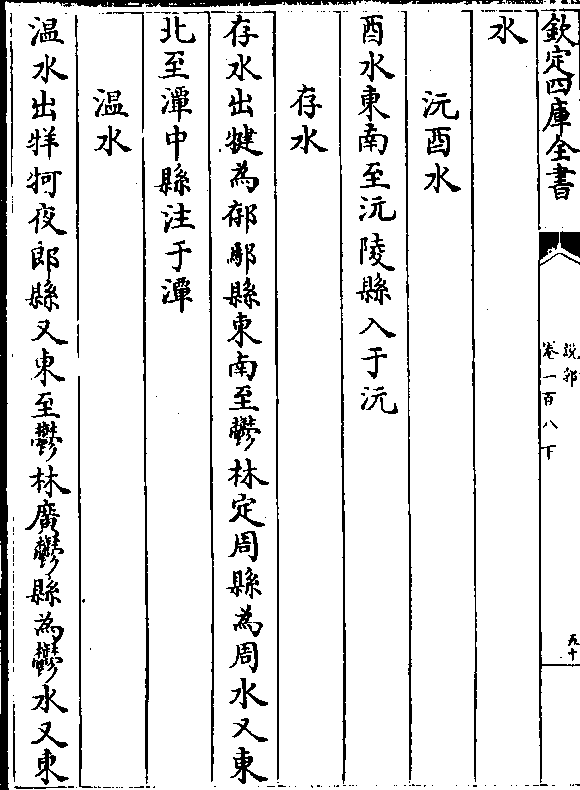 欽定四庫全書
說郛
卷一百八下
五十
水
沅酉水
酉水東南至沅陵縣入于沅
存水
存水出犍為䣕鄢縣東南至鬱林定周縣為周水又東
北至潭中縣注于潭
温水
温水出牂牁夜郎縣又東至鬱林廣鬱縣為鬱水又東